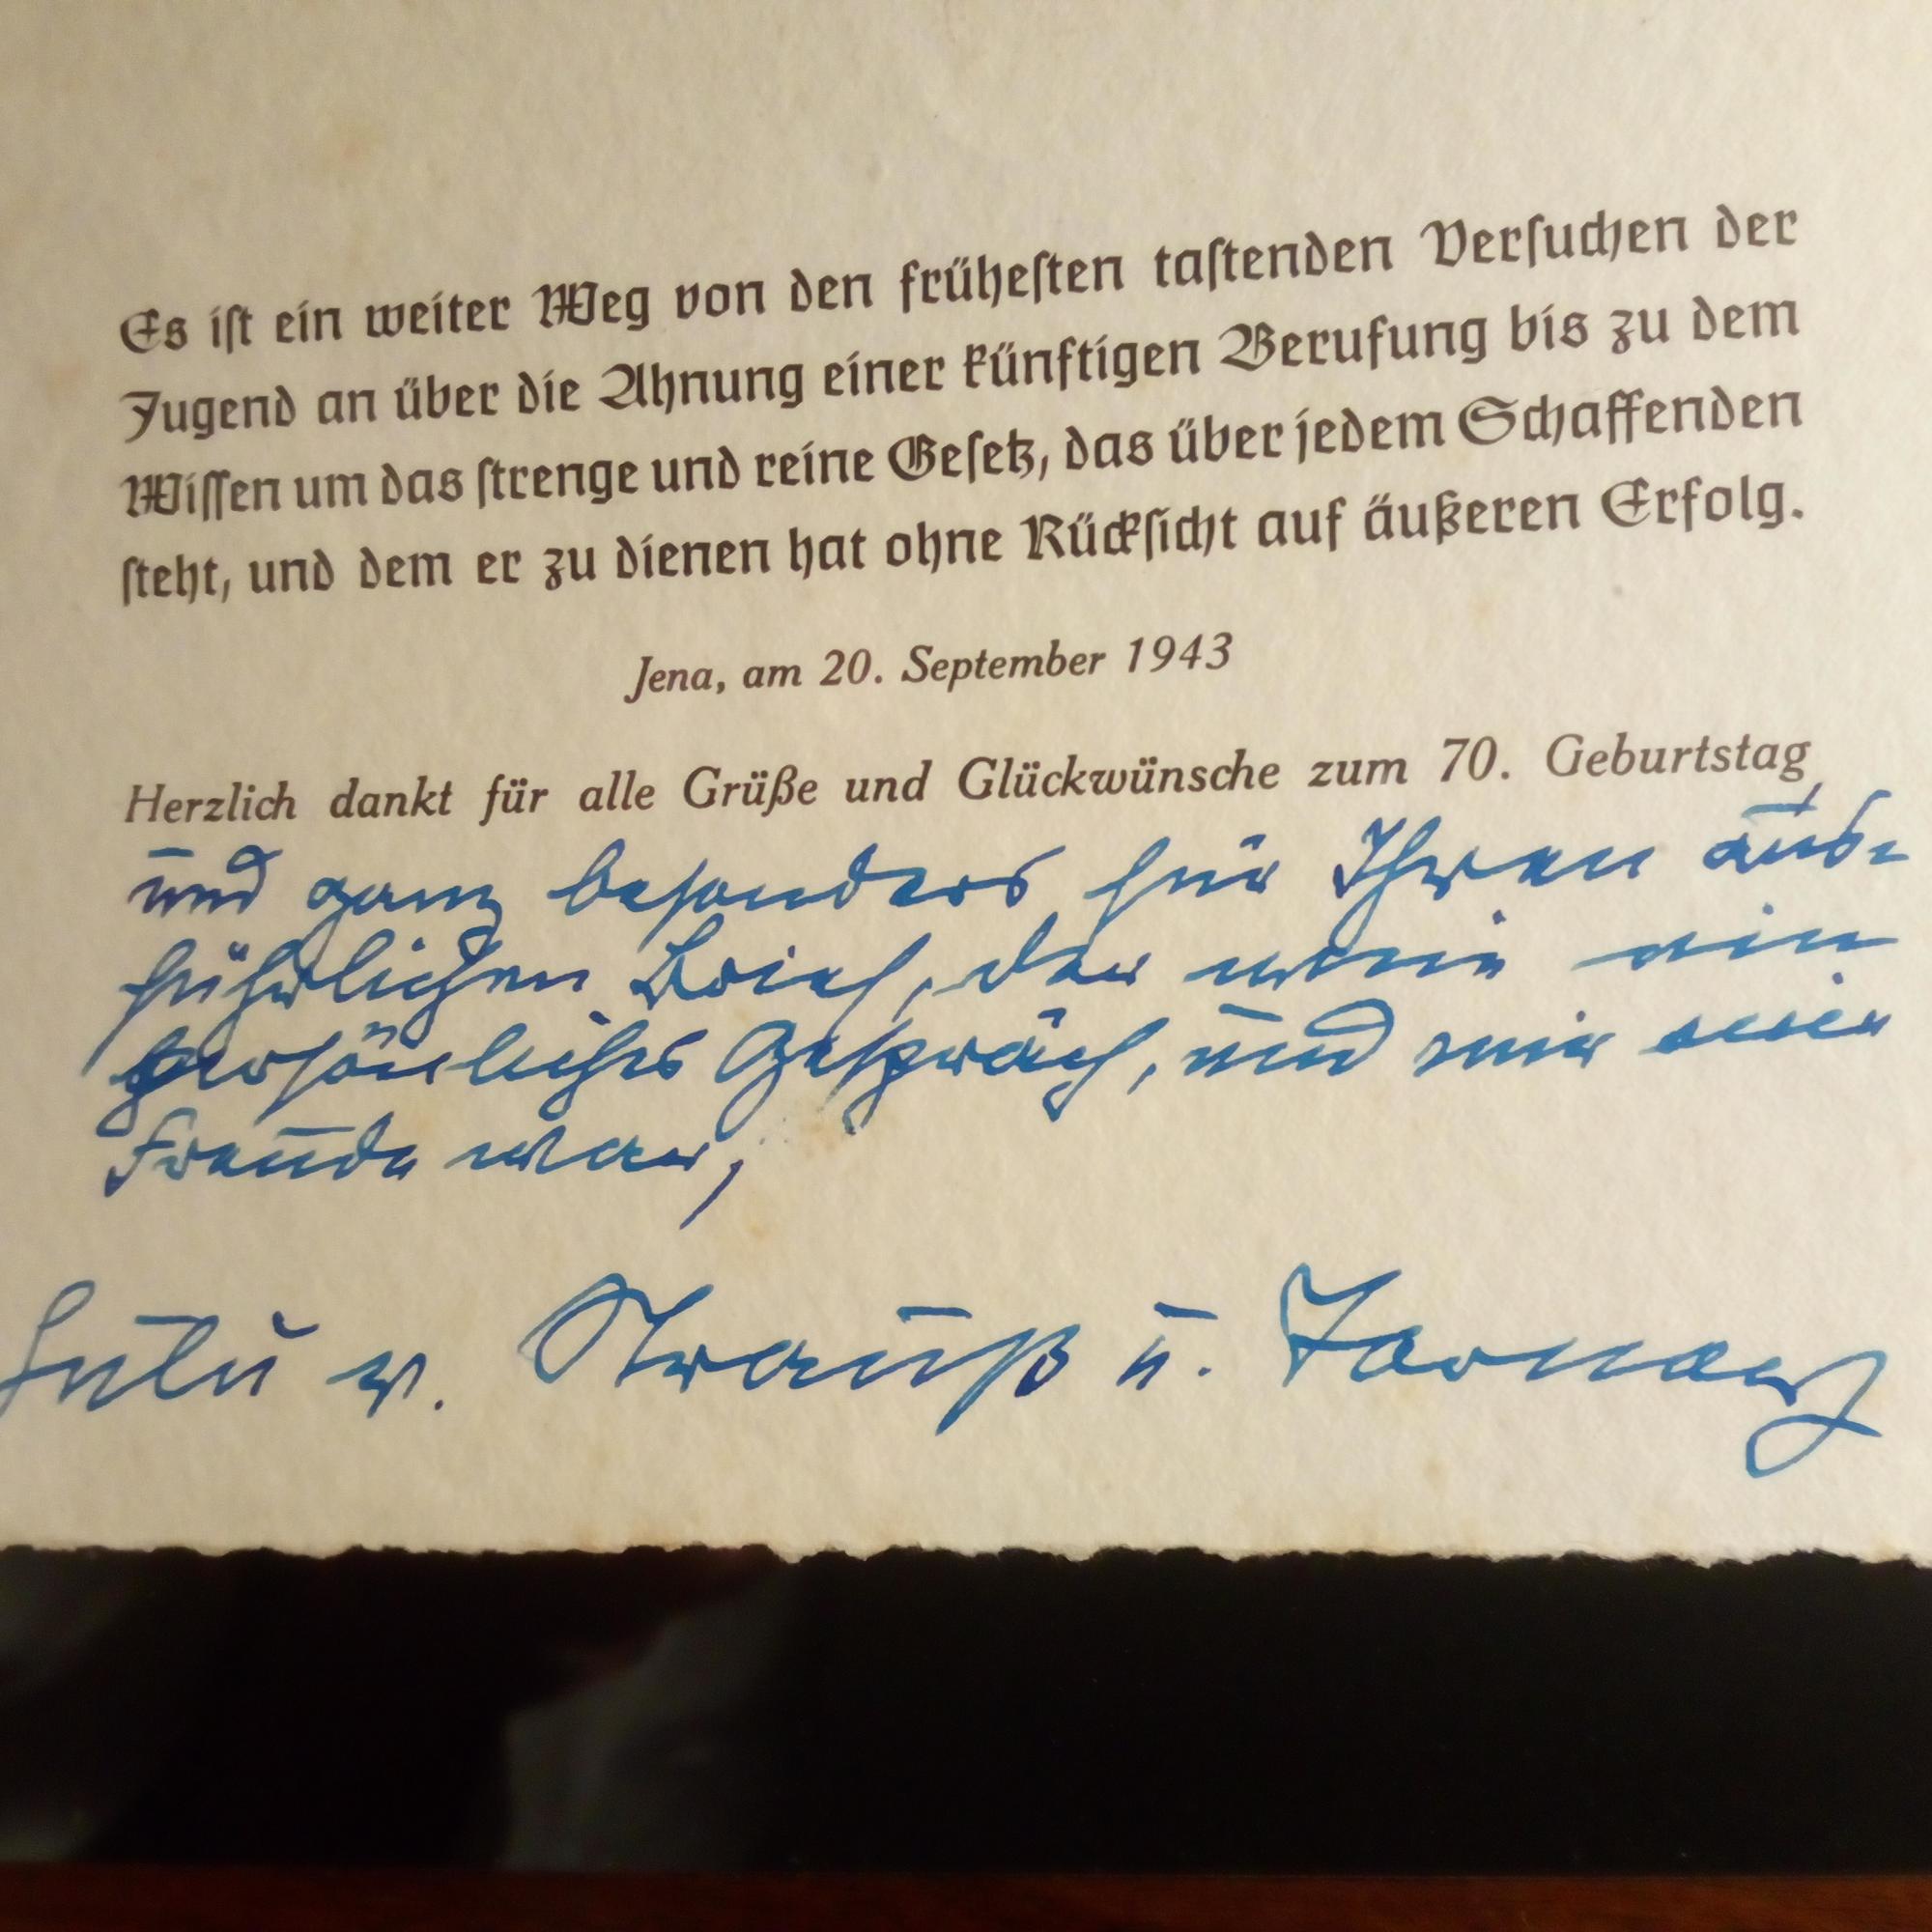 Es ist ein weiter Weg von den frühesten tastenden Versuchen der
Jugend an über die Ahnung einer künftigen Berufung bis zu dem
Wissen um das strenge und reine Gesetz, das über jedem Schaffenden
steht, und dem er zu dienen hat ohne Rücksicht auf äußeren Erfolg.
Jena, am 20. September 1943
Herzlich dankt für alle Grüße und Glückwünsche zum 70. Geburtstag,
und ganz besonders für Ihren aus-
führlichen Brief, der wie ein
persönliches Gespräch, und mir eine
Freude war,
Lulu v. Strauß u. Torney